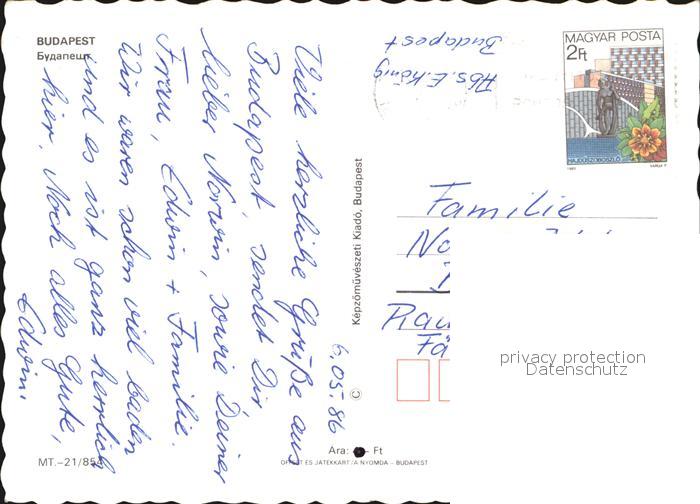 BUDAPEST
Будапешт
Viele herzliche Grüße aus
Budapest, sendet Dir
lieber Norwin, sowie Deiner
Frau, Edwin + Familie.
Wir waren schon viel baden
und es ist ganz herrlich
hier, Noch alles Gute,
Edwin.
6.05.86
MT.–21/85
Képzőművészeti Kiadó, Budapest
©
Ára: – Ft
OFFSET ÉS JÁTÉKKÁRTYA NYOMDA – BUDAPEST
Abs. E. König
Budapest
MAGYAR POSTA
2Ft
HAJDÚSZOBOSZLÓ
VARGA P.
Familie
No
Rad
Fä
privacy protection
Datenschutz